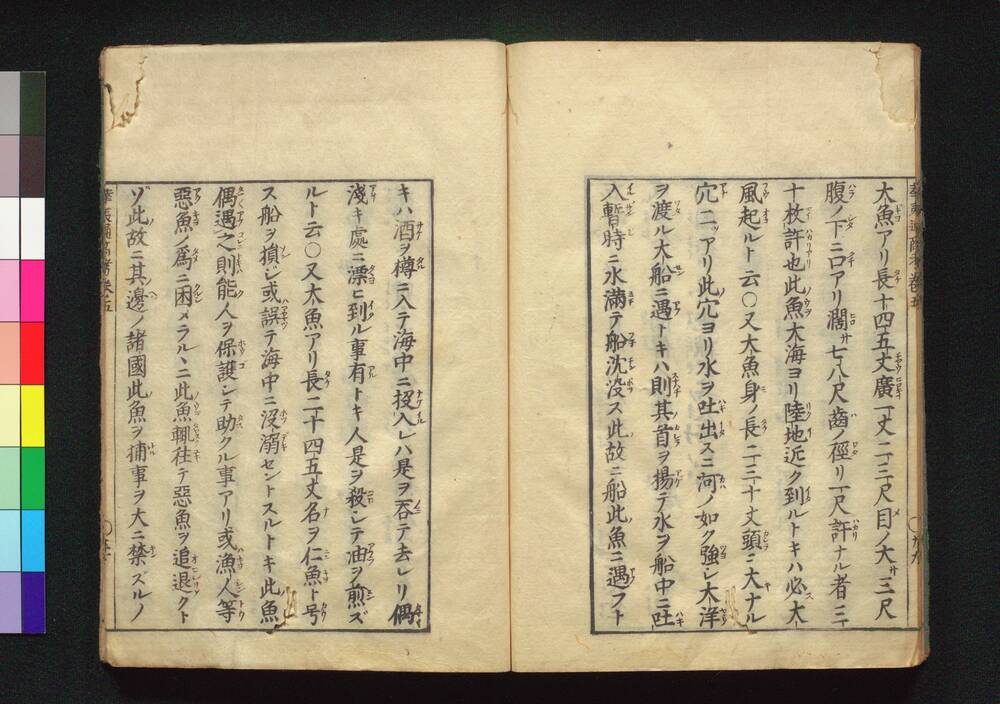 大魚アリ長十四五丈廣一丈二三尺目ノ大サ三尺
腹ノ下ニ口アリ濶サ七八尺齒ノ徑リ一尺許ナル者三
十枚許也此魚大海ヨリ陸地近ク到ルトキハ必大
風起ルト云〇又大魚身ノ長二三十丈頭ニ大ナル
穴二ツアリ此穴ヨリ水ヲ吐出スニ河ノ如ク強シ大洋
ヲ渡ル大船ニ遇トキハ則其首ヲ揚テ水ヲ船中ニ吐
入暫時ニ水滿テ船沈没ス此故ニ船此魚ニ遇フト
キハ酒ヲ樽ニ入テ海中ニ投入レハ是ヲ呑テ去レリ偶
淺キ處ニ漂ヒ到ル事有トキ人是ヲ殺シテ油ヲ煎ズ
ルト云〇又大魚アリ長二十四五丈名ヲ仁魚ト号
ス船ヲ損ジ或誤テ海中ニ没溺セントスルトキ此魚
偶遇之則能人ヲ保護シテ助クル事アリ或漁人等
惡魚ノ爲ニ困メラルヽニ此魚輙往テ惡魚ヲ追退クト
ゾ此故ニ其邊ノ諸國此魚ヲ捕事ヲ大ニ禁ズルノ